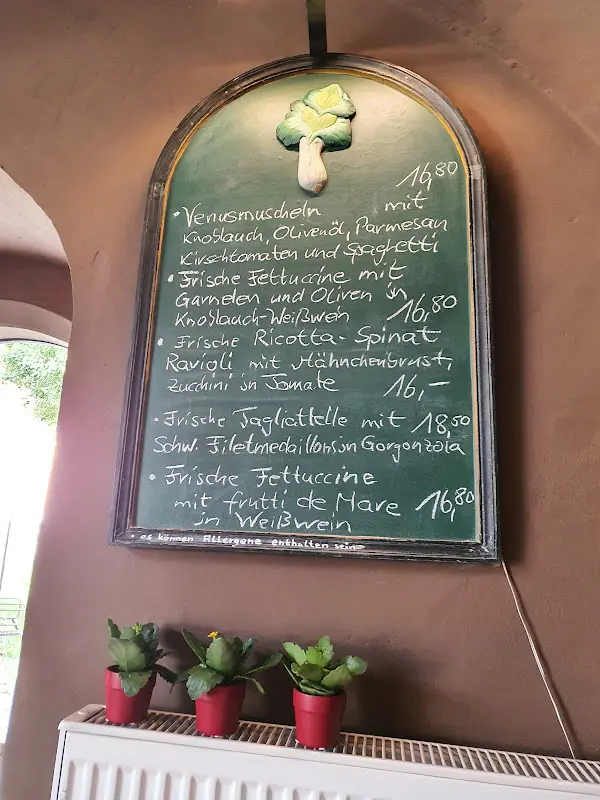 16,80
• Venusmuscheln mit
Knoblauch, Olivenöl, Parmesan
Kirschtomaten und Spaghetti
• Frische Fettuccine mit
Garnelen und Oliven in
Knoblauch-Weißwein 16,80
• Frische Ricotta-Spinat
Ravioli mit Hähnchenbrust,
Zucchini in Tomate 16,-
• Frische Tagliattelle mit 18,50
Schw. Filetmedaillons in Gorgonzola
• Frische Fettuccine
mit frutti de Mare 16,80
in Weißwein
* es können Allergene enthalten sein